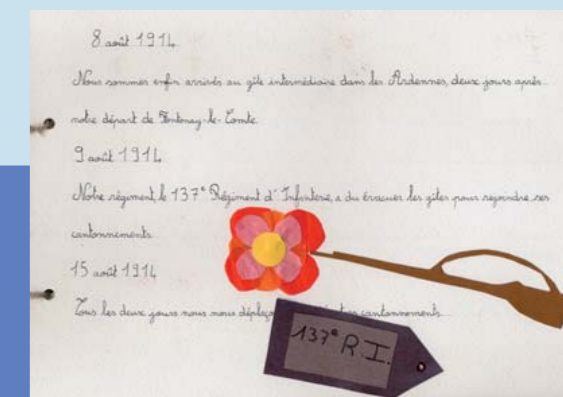 8 août 1914
Nous sommes enfin arrivés au gîte intermédiaire dans les Ardennes, deux jours après
notre départ de Fontenay-le-Comte.
9 août 1914
Notre régiment, le 137e Régiment d'Infanterie, a du évacuer les gîtes pour rejoindre ses
cantonnements.
15 août 1914
Tous les deux jours nous nous cantonnements.
137e R.I.